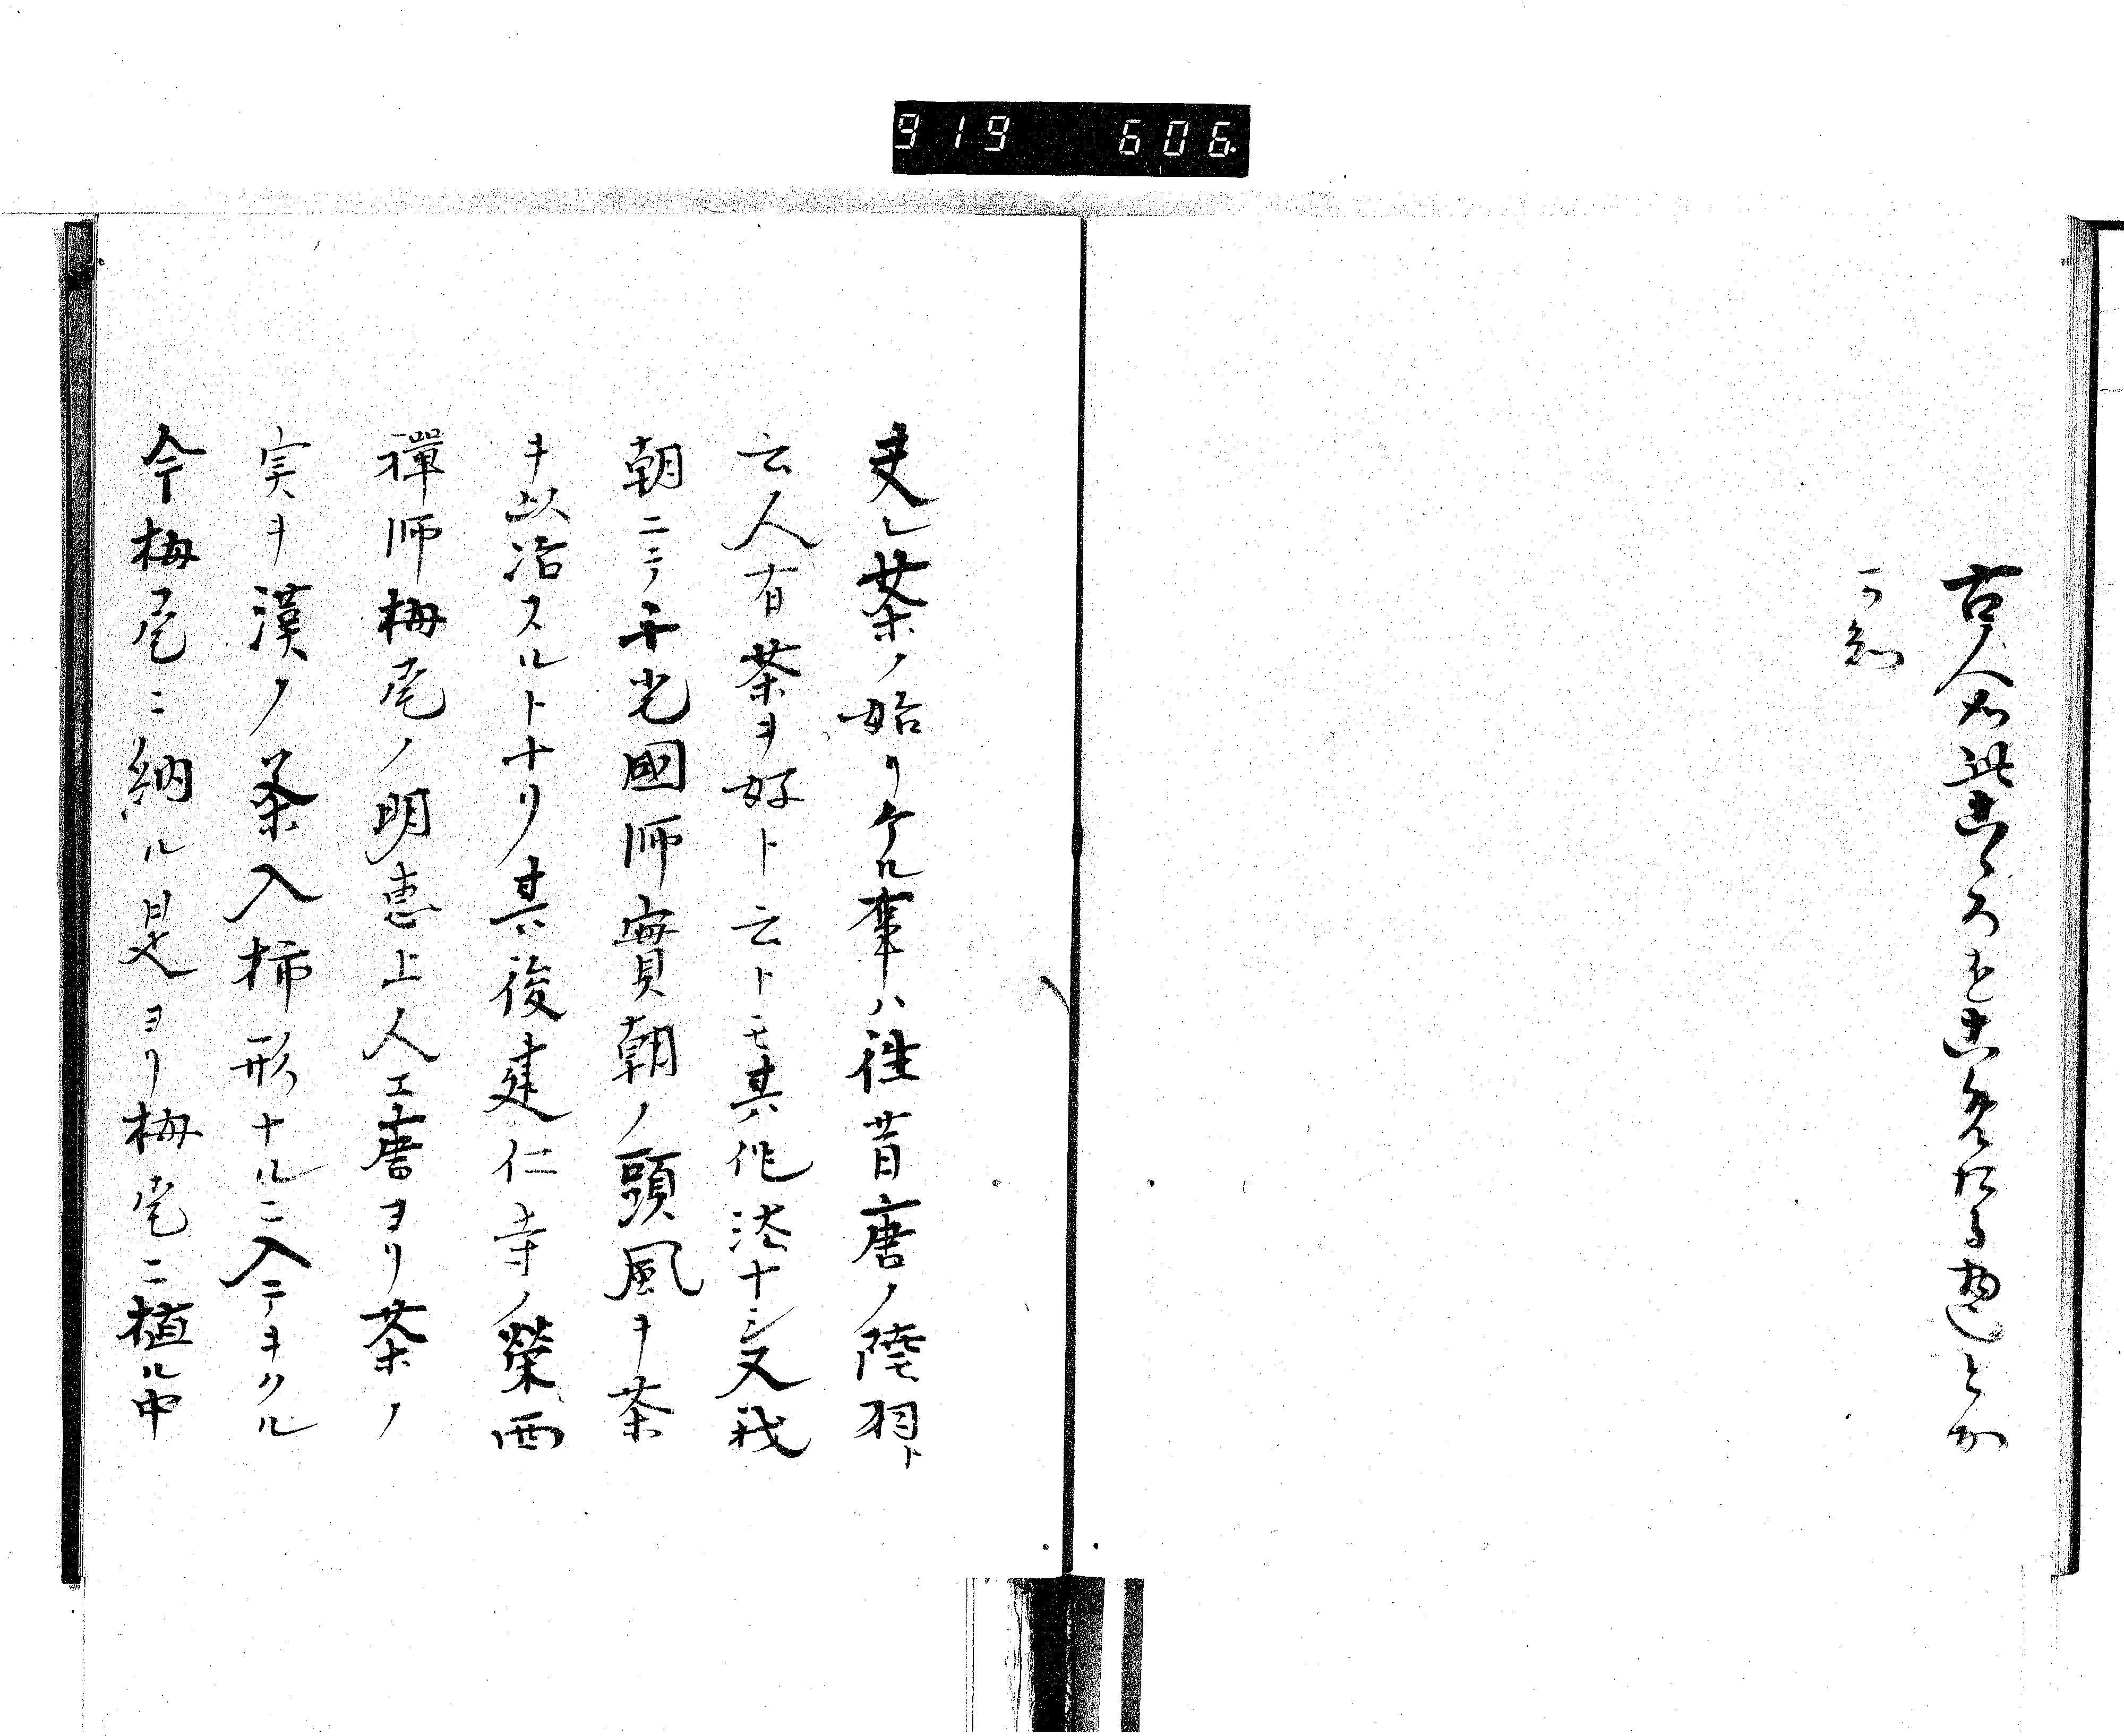 919 606
古人如此こゝろをこめたる
可知
夫レ茶ノ始リケル事ハ往昔唐ノ陸羽ト
云人有茶ヲ好ト云トモ其作法ナシ又我
朝ニテ千光國師實朝ノ頭風ヲ茶
ヲ以治スルトナリ其後建仁寺ノ榮西
禪師栂尾ノ明恵上人エ唐ヨリ茶ノ
実ヲ漢ノ茶入柿形ナルニ入テヲクル
今栂尾ニ納ル是ヨリ栂尾ニ植ル中